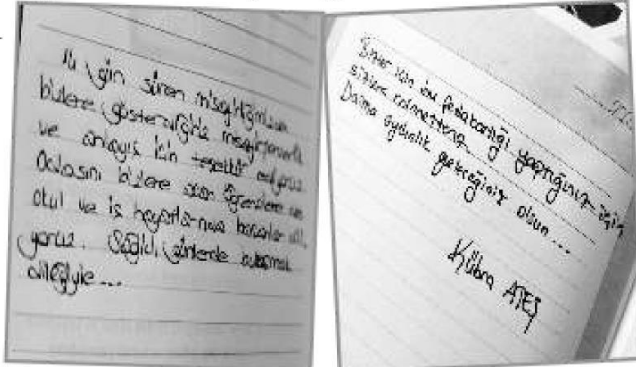 gün süren misafirliğimizde
bizlere gösterdiğiniz misafirperverlik
ve anlayış için teşekkür ediyoruz.
Odasını bizlere açan öğrencilere
okul ve iş hayatlarında başarılar
yoruz. Sağlıklı günlerde
dileğiyle...
Bizler için bu fedakarlığı yaptığınız için
sizlere minnettarız.
Daima aydınlık geleceğiniz olsun...
Kübra ATEŞ